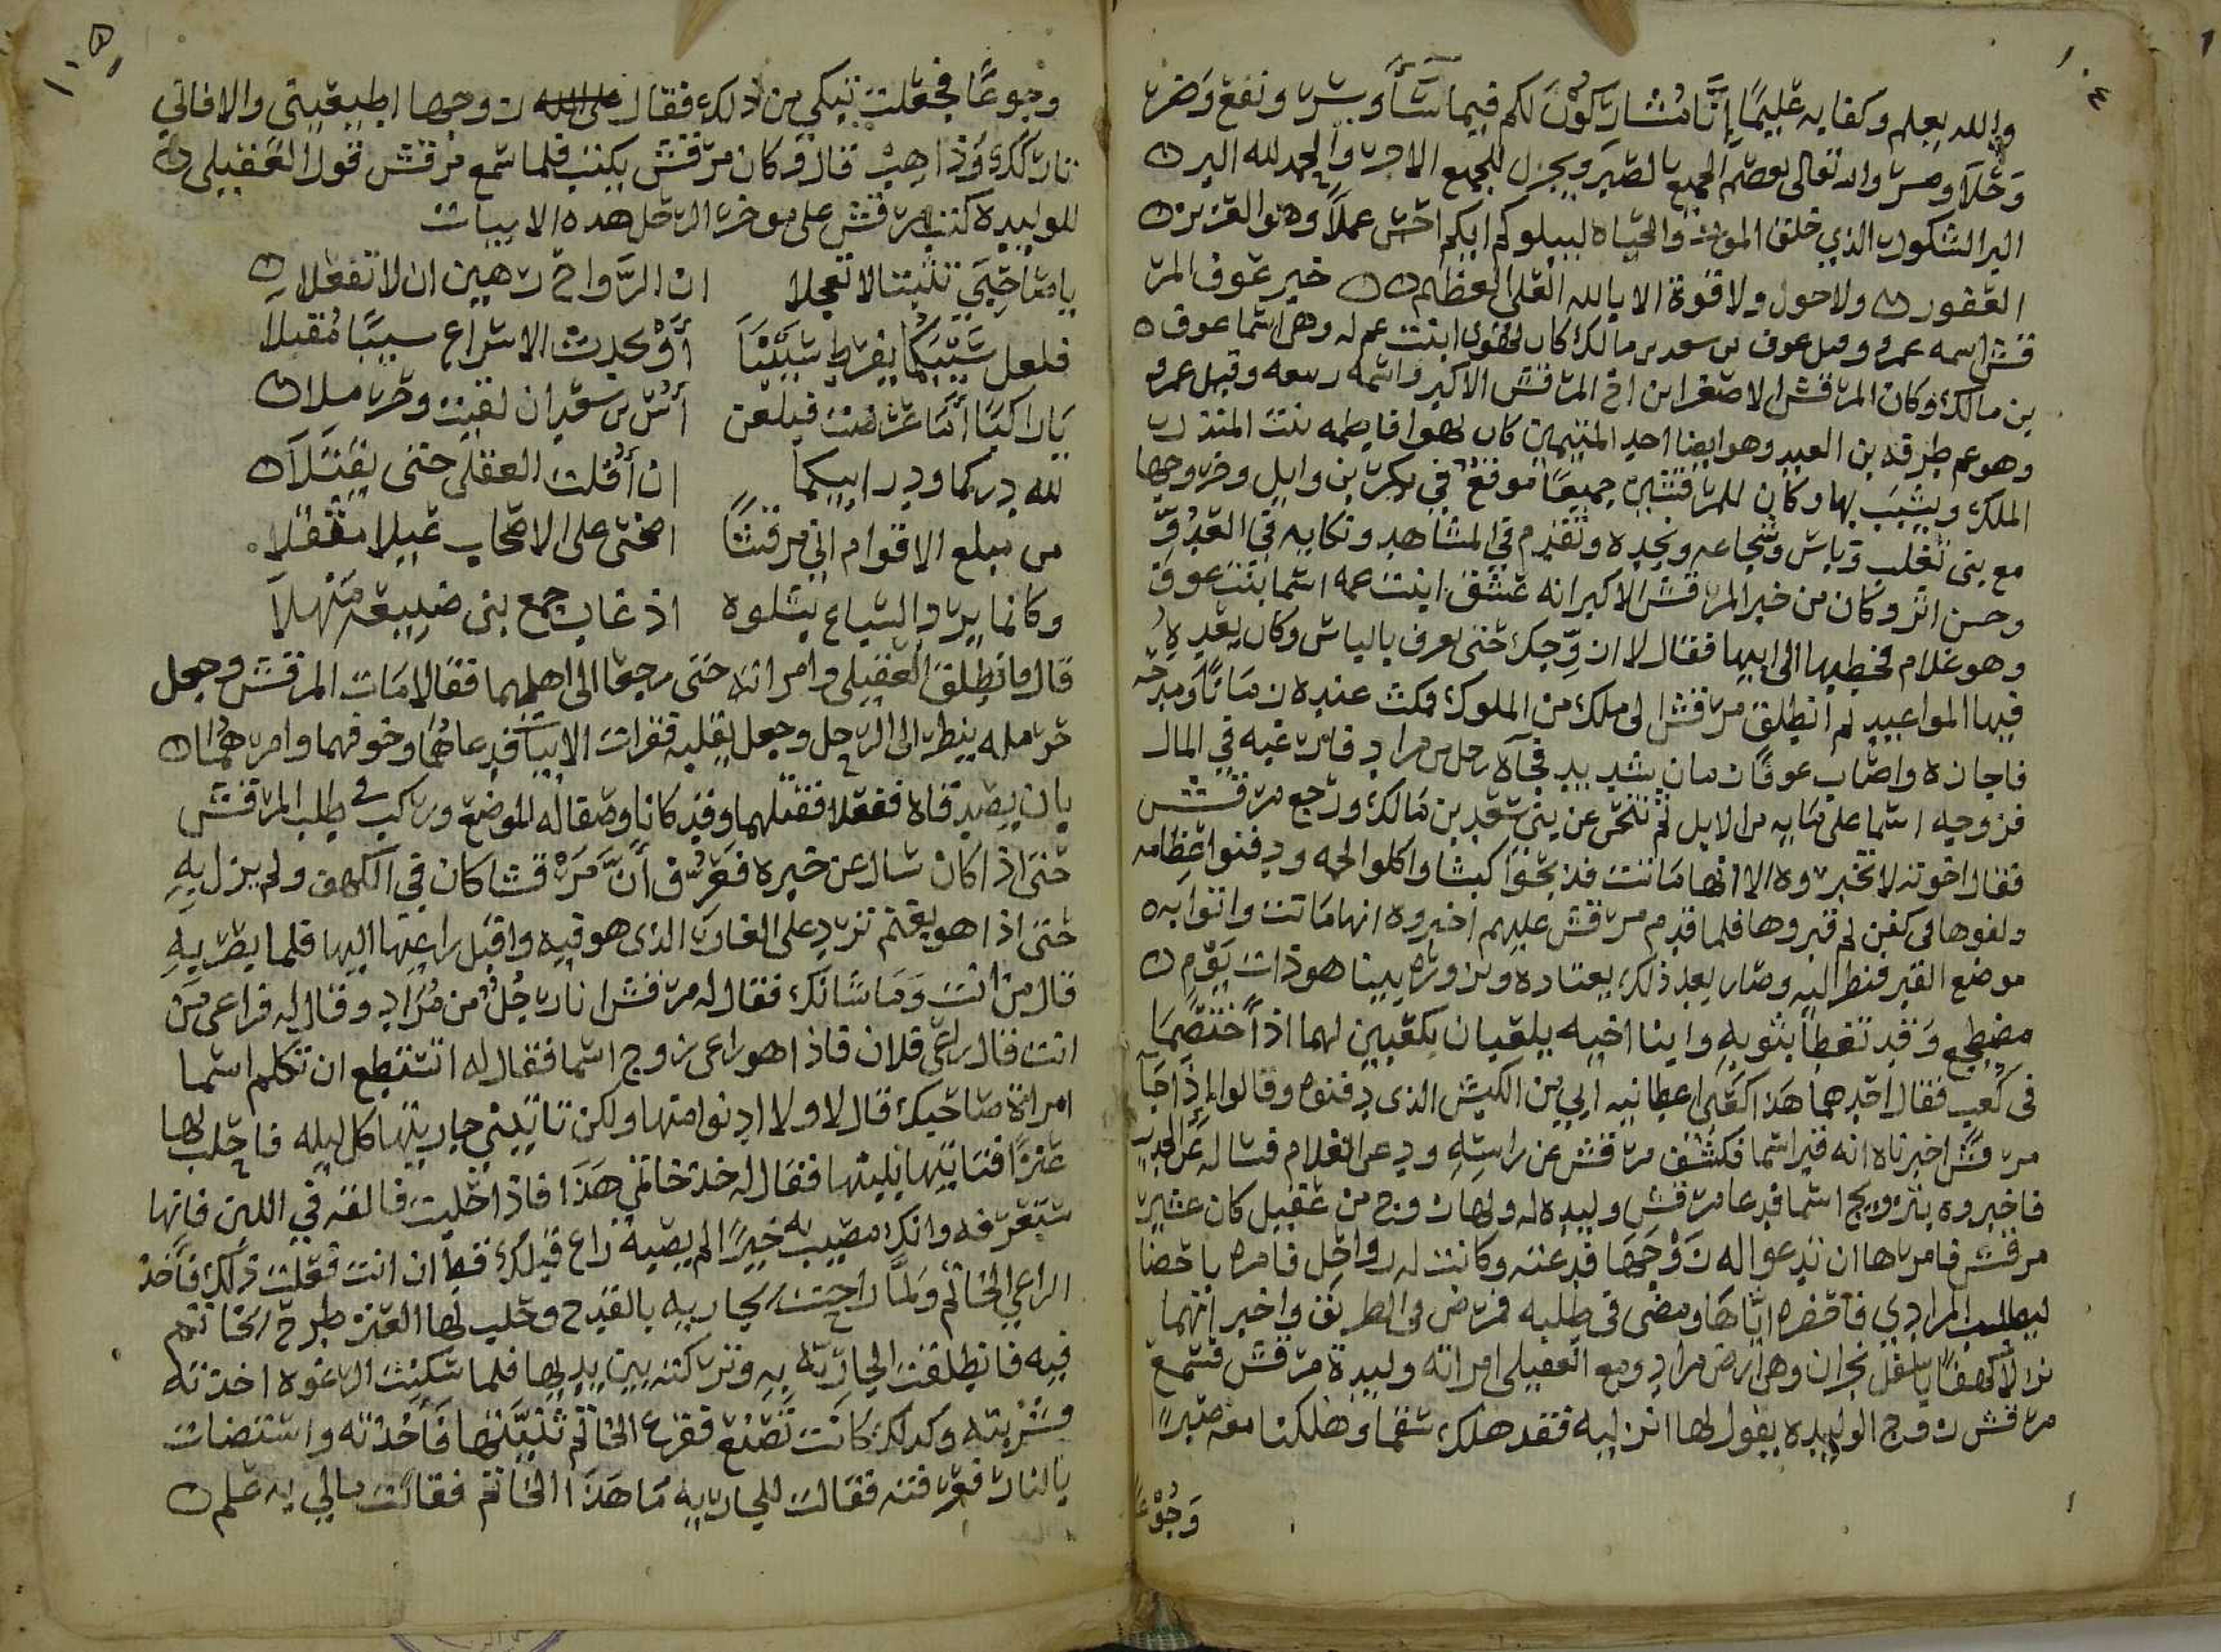 ١٠٤
والله يعلم وكفا به عليمًا إنَّا مُشاركون لكم فيما سَاَّ وسر ونفع وَضر
وَحَلاَ ومر والله تعالى يعصم الجميع بالصبر ويجزل للجميع الاجر والحمد لله البر
البر الشكور الذي خلق الموت والحياه ليبلوكم ايكم احسن عملاً وهو العزيز
الغفور ولا حول ولا قوة الا بالله العلي العظيم خبر عوف المر
قش اسمه عمرو وقيل عوف بن سعد بن مالك كان يهوى ابنت عم له وهى اسما عوف
بن مالك وكان المرقش الاصغر ابن اخ المرقش الاكبر واسمه ربيعه وقيل عمرو
وهو عم طرفه بن العبد وهو ايضا احد المتيمين كان يهوا فاطمه بنت المنذر
الملك ويشبب بها وكان للمرقشين جميعًا موقعٌ في بكر بن وايل وحروبها
مع بنى تغلب وباس وشجاعه ونجده وتقدم في المشاهد ونكايه في العدُوِّ
وحسن اثر وكان من خبر المرقش الاكبر انه عشق ابنت عمه اسما بنت عوف
وهو غلام فخطبها الى ابيها فقال لا ازوِّجك حتى تعرف بالباس وكان يعده
فيها المواعيد ثم انطلق مرقش الى ملك من الملوك فمكث عنده زمَانًا ومدحه
فاجازه واصاب عوفًا زمان شديد فجآه رجل من مراد فارغبه في المال
فزوجه اسما على مَايه من الابل ثم تنحى عن بنى سَعد بن مَالك ورجع مرقش
فقال اخوته لا تخبروه الا انها مَاتت فذبحوا كبشا واكلوا لحمه ودفنوا عظامه
ولفوها في كفن ثم قبروها فلما قدم مرقش عليهم اخبروه انها مَاتت واتوا به
موضع القبر فنظر اليه وصار بعد ذلك يعتاده ويزوره بينا هو ذات يَوم
مضطجع وَقد تغطا بثوبه وابنا اخيه يلعبان بكعبين لهما اذ اختصَما
فى كعب فقال احدهما هَذا كعبى اعطانيه ابي من الكبش الذى دفنوه وقالوا اذا جآ
مرقشَّ اخبرناه انه قبر اسما فكشف مرقش عن راسه ودعى الغلام فساله عَن الحديث
فاخبروه بتزويج اسما فدعا مرقش وليده له ولها زوج من عقيل كان عشير
مرقش فامرها ان تدعوا له زوجها فدعته وكانت له رواحل فامره باحضا
ليطلب المرادي فاحضره ايَّاها ومضى في طلبه فمرض فى الطريق واخبر انهما
نزلا كهفًا باسفل نجران وهى ارض مراد ومع العقيلى امراته وليدة مرقش فسمع
مرقش زوج الوليده يقول لها اتركيه فقد هلك سقمًا وهلكنا معه صبرًا
وَجُوْعًا
١٠٥
وجوعًا فجعلت تبكي من ذلك فقال زوجها اطيعينى والا فاني
تاركك وَذاهب قال وكان مرقش يكتب فلما سمع مرقش قول العقيلى
للوليده كتب مرقش على موخر الرحل هذه الابيات
ياصَاحبَيَّ تلبثا لا تعجلا ان الرَّواح رهين ان لا تفعلا
فلعل سَيْبكُمَا يفرط سَيّيًا أوْ يحدث الاسراع سيبًا مُقبلا
يَاراكبًا امَّا عَرضت فبلغن أنس بن سعد ان لقيت وحرملا
لله دركما ودر ابيكما ان أفلت العقلى حتى يقتلا
من مبلغ الاقوام ان مرقشًا اضحى على الاصحاب عبيلا مثقلا
وكانما يرد السباع بشلوه اذ غاب جمع بنى ضبيعة منهلاَ
قال فانطلق العقيلى وامراته حتى رجعا الى اهلهما فقالا مَات المرقش وجعل
حرمله ينظر الى الرحل وجعل يقلبه فقرات الابيات فدعاهُمَا وخوفهما وامرهُمَا
بان يصدقاه ففعلا فقتلهما وقد كانا وصفا له الموضع وركب في طلب المرقش
حتى اذا كان سال عن خبره فعَرُف أنَّ مَرْقشا كان في الكهف ولم يزل بِهِ
حتى اذا هو بغنم ترد على الغار الذى هو فيه واقبل راعيها اليها فلما بصر بِهِ
قال من انت وَمَا شَانك فقال له مرقش انا رَجُلٌ من مُرَاد وقال له فراعى مَن
انت قال راعى فلان فاذا هو راعى زوج اسما فقال له اتستطع ان تكلم اسما
امراة صَاحبك قال لا ولا ادنوا منها ولكن تاتينى جاريتها كل ليله فاحلب لها
عنزًا فتاتيها بلبنها فقال له خذ خاتمى هَذا فاذا حلبت فالقه في اللبن فانها
ستعرفه وانك مصيب به خيرًا لم يصبه راع قبلك قط ان انت فعلت ذلك فأخذ
الراعي الخاتم وَلمَّا راحت الجاريه بالقدح وحلب لها العنز طرح الخاتم
فيه فانطلقت الجاريَة بِهِ وتركته بين يديها فلما سكنت الرغوه اخذته
فشَرْبته وكذلك كَانت تصْنع فقرع الخاتم ثنيتها فَأخذته واستضات
بالنار فعرفته فقالت للجاريه مَا هَذَا الخاتم فقالت مالي به علم